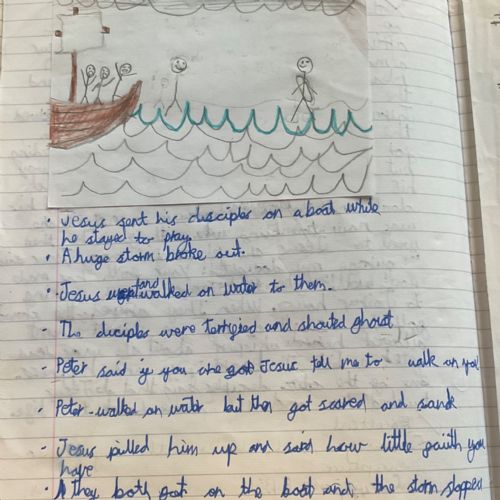 • Jesus sent his disciples on a boat while
he stayed to pray.
• A huge storm broke out.
• Jesus and walked on water to them.
- The diciples were terrified and shouted ghost
- Peter said if you are Jesus tell me to walk on
- Peter walked on water but then got scared and sank
- Jesus pulled him up and said how little faith you
have
• they both got on the boat and the storm stopped